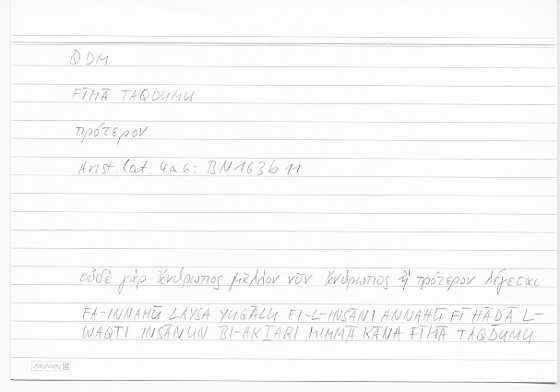 QDM
FĪMĀ TAQDUMU
πρότερον
Arist. Cat. 4a6: BN163b11
οὐδὲ γάρ ἄνθρωπος μᾶλλον νῦν ἄνθρωπος ἢ πρότερον λέγεται
FA-INNAHŪ LAYSA YUQĀLU FI-L-INSĀNI ANNAHŪ FĪ HĀḎĀ L-
WAQTI INSĀNUN BI-AKṮARI MIMMĀ KĀNA FĪMĀ TAQDUMU